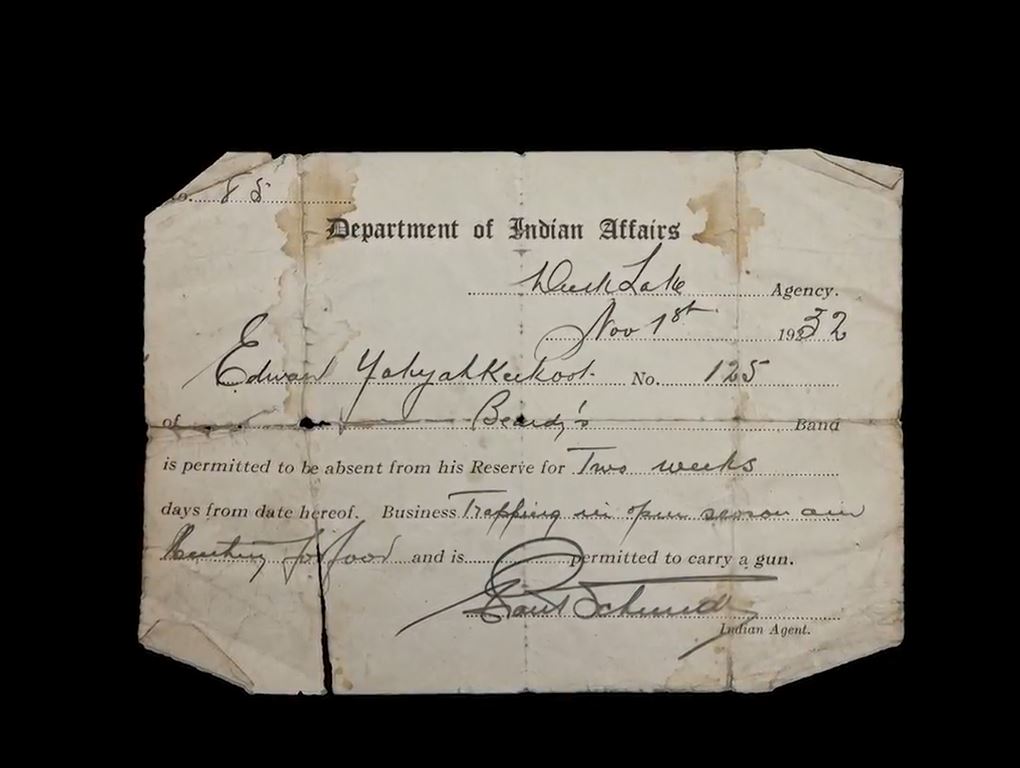 No. 85
Department of Indian Affairs
Duck Lake Agency.
Nov 1st 1932
Edward Yahyahkeekoot. No. 125
of Beardy's Band
is permitted to be absent from his Reserve for Two weeks
days from date hereof. Business Trapping in open season and
Hunting for food and is permitted to carry a gun.
Paul Schmidt
Indian Agent.